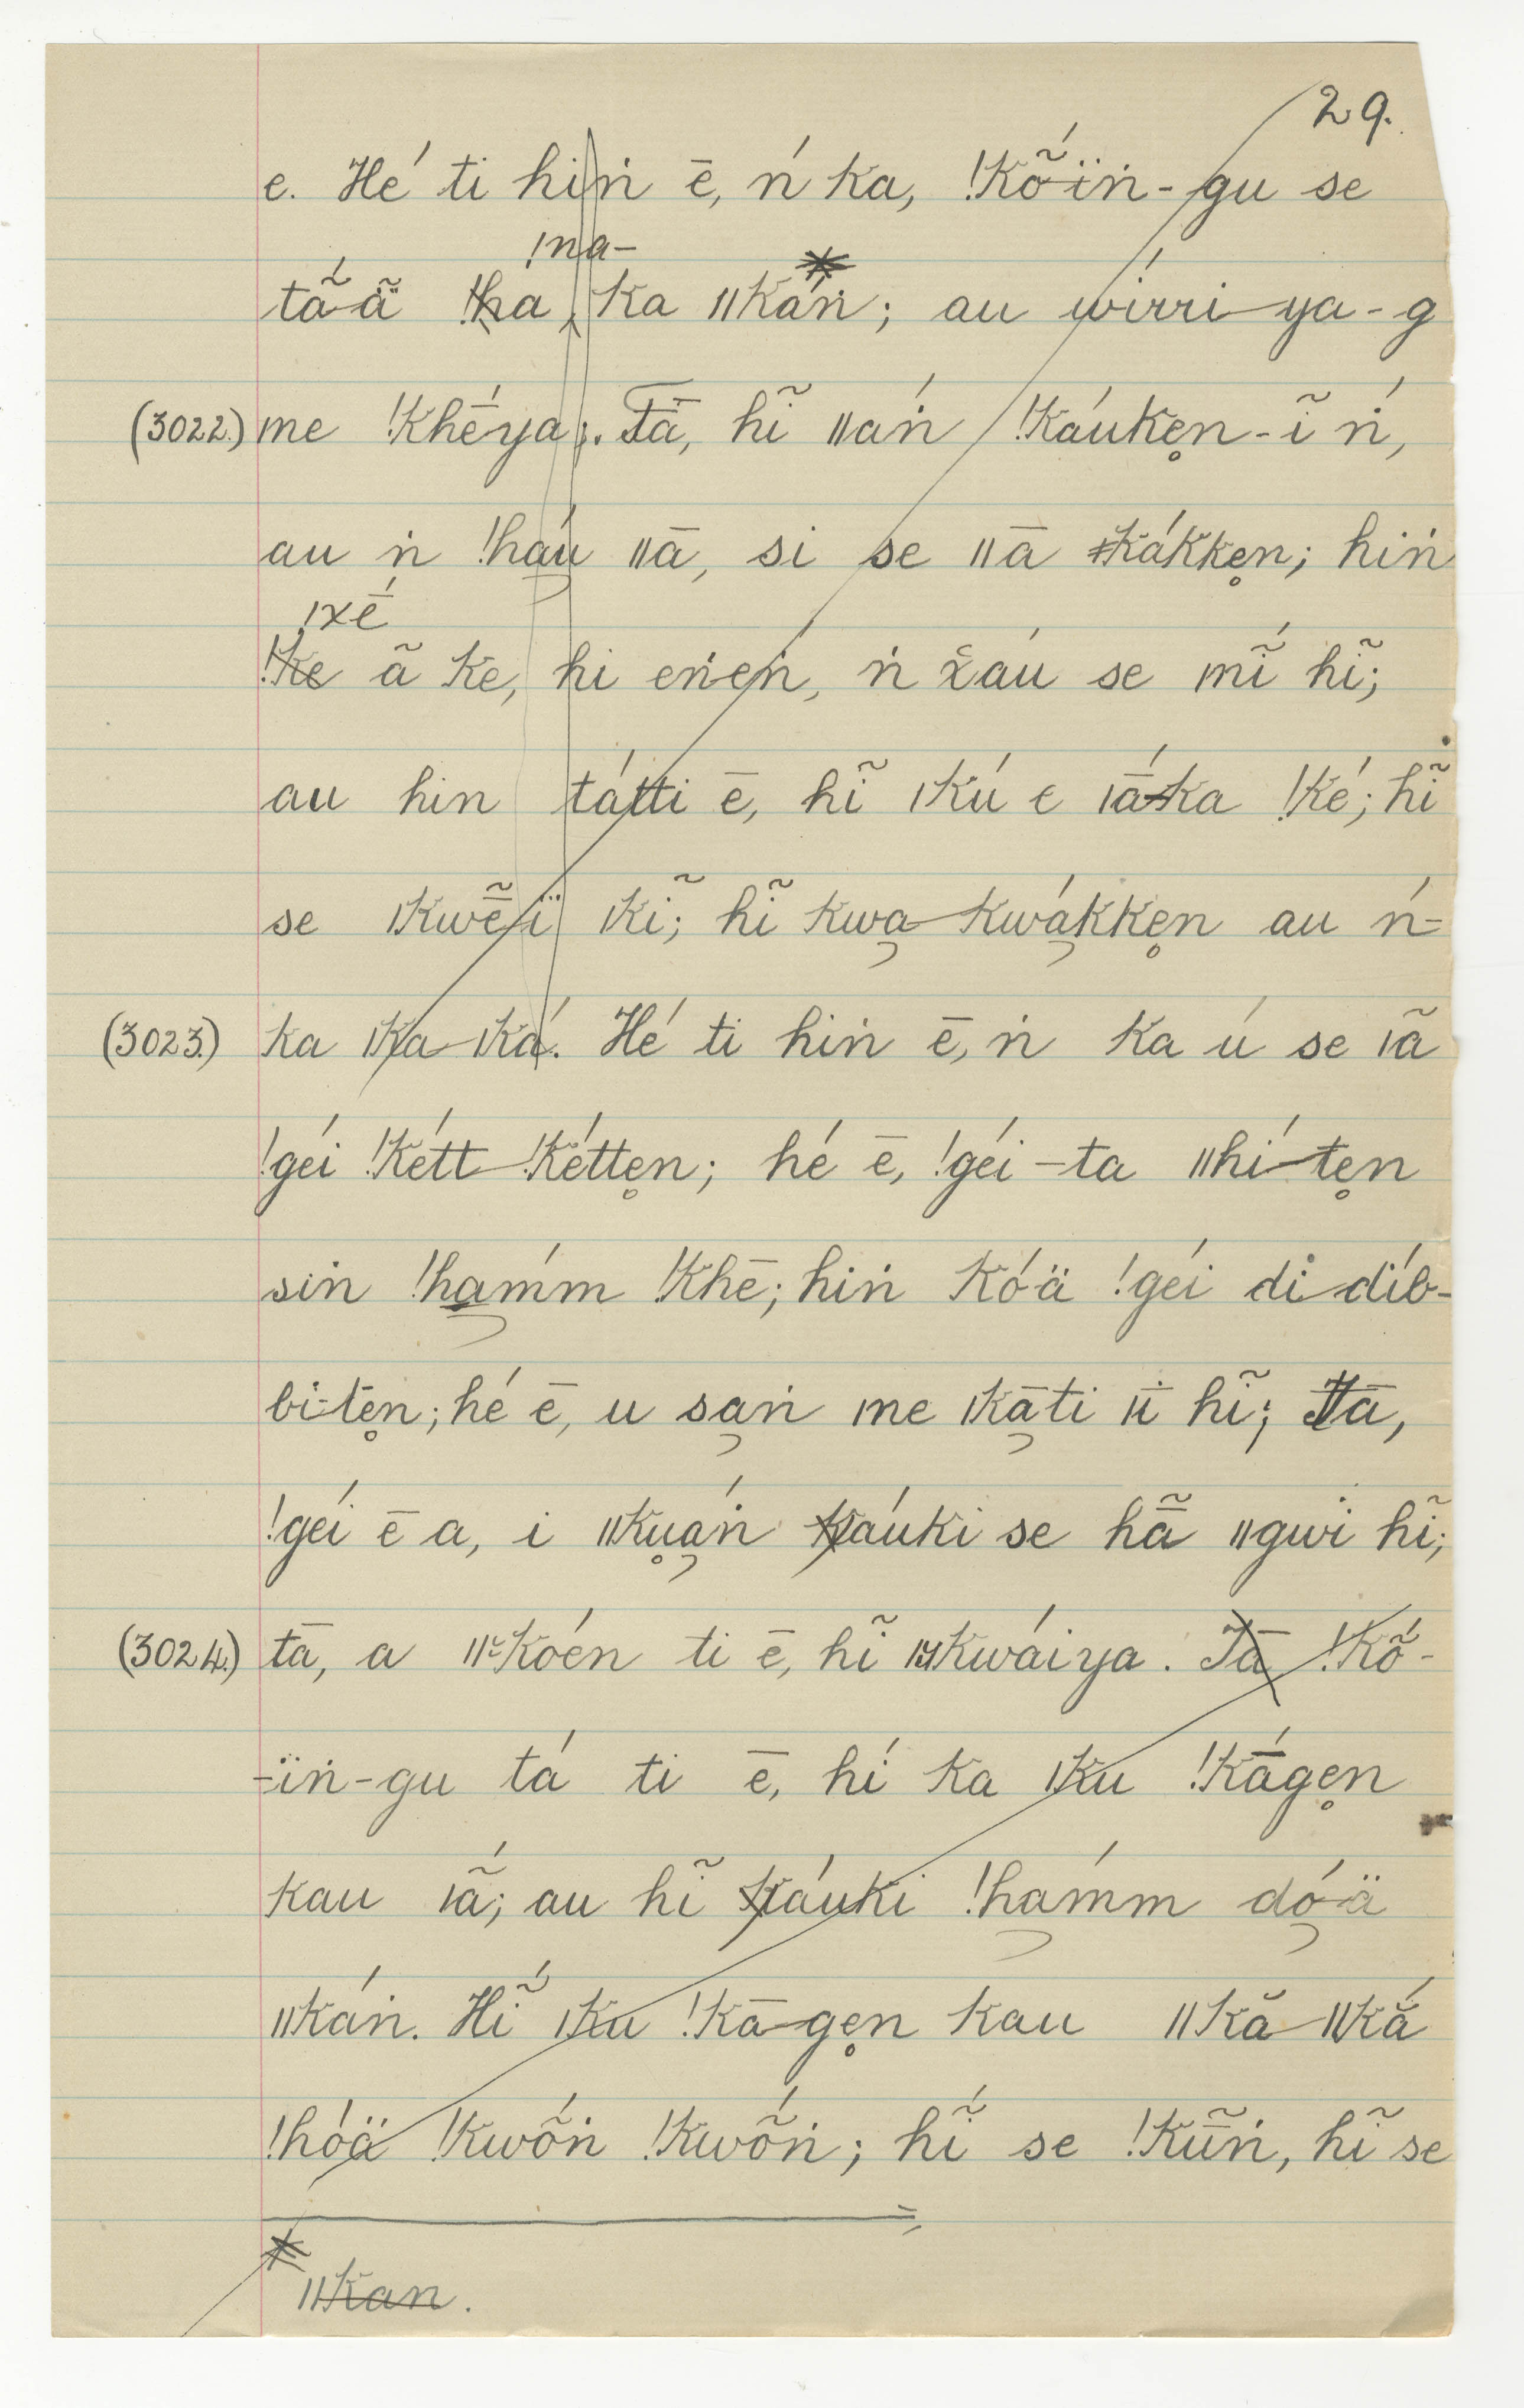 29.
e. Hé ti hiṅ ē, ń ka, !Kõ̍ïṅ-gu se
!na-
tã́ä̃ !ha ka ǁkáṅ*; au wírri-ya-g
(3022.) me !khé̄ya; Tā, hĩ ǁaṅ́ !káuken̥-ĩ ń,
au ṅ !háu̇ ǁā, si se ǁā ǂkákken̥; hiṅ
ǀxḗ
!ke ã ke, hi eṅeṅ́, ṅ x̌áu se mĩ́ hĩ;
au hin tátti ē, hĩ ǀkú e ǀā́ka !ké; hĩ
se ǀkwẽ̄ï ǀkĩ; hĩ kwa̰-kwá̰kken̥ au ń=
(3023.) ka ǀka-ǀká. Hé ti hiṅ ē, ṅ ka ú se ǀã
!géi !kétt-!kétten̥; hé ē, !géi-ta ǁhí-ten̥
siṅ !ha̰ḿm !khē; hiṅ kóä !géi di-díb-
bi-tēn̥; hé ē, u sa̰ṅ me ǀkā̰ti ū́ hĩ; Tā,
!géi ē a, i ǁku̥a̰ṅ́ k̸áuki se hã̄ ǁgwi hĩ;
(3024.) tā, a ǁkóën ti ē, hĩ ǀkwáiya. Tā !Kṍ-
-ïṅ-gu tá ti ē, hí ka ǀku !kā́gen̥
kau ǀã́; au hĩ k̸áuki !ha̰ḿm dó̰ä
ǁkáṅ. Hĩ́ ǀku !kā-gen̥ kau ǁkă-ǁkắ
!hóä !kwṍṅ !kwṍṅ; hĩ́ se !kũ̄ṅ, hĩ se
* ǁkan.